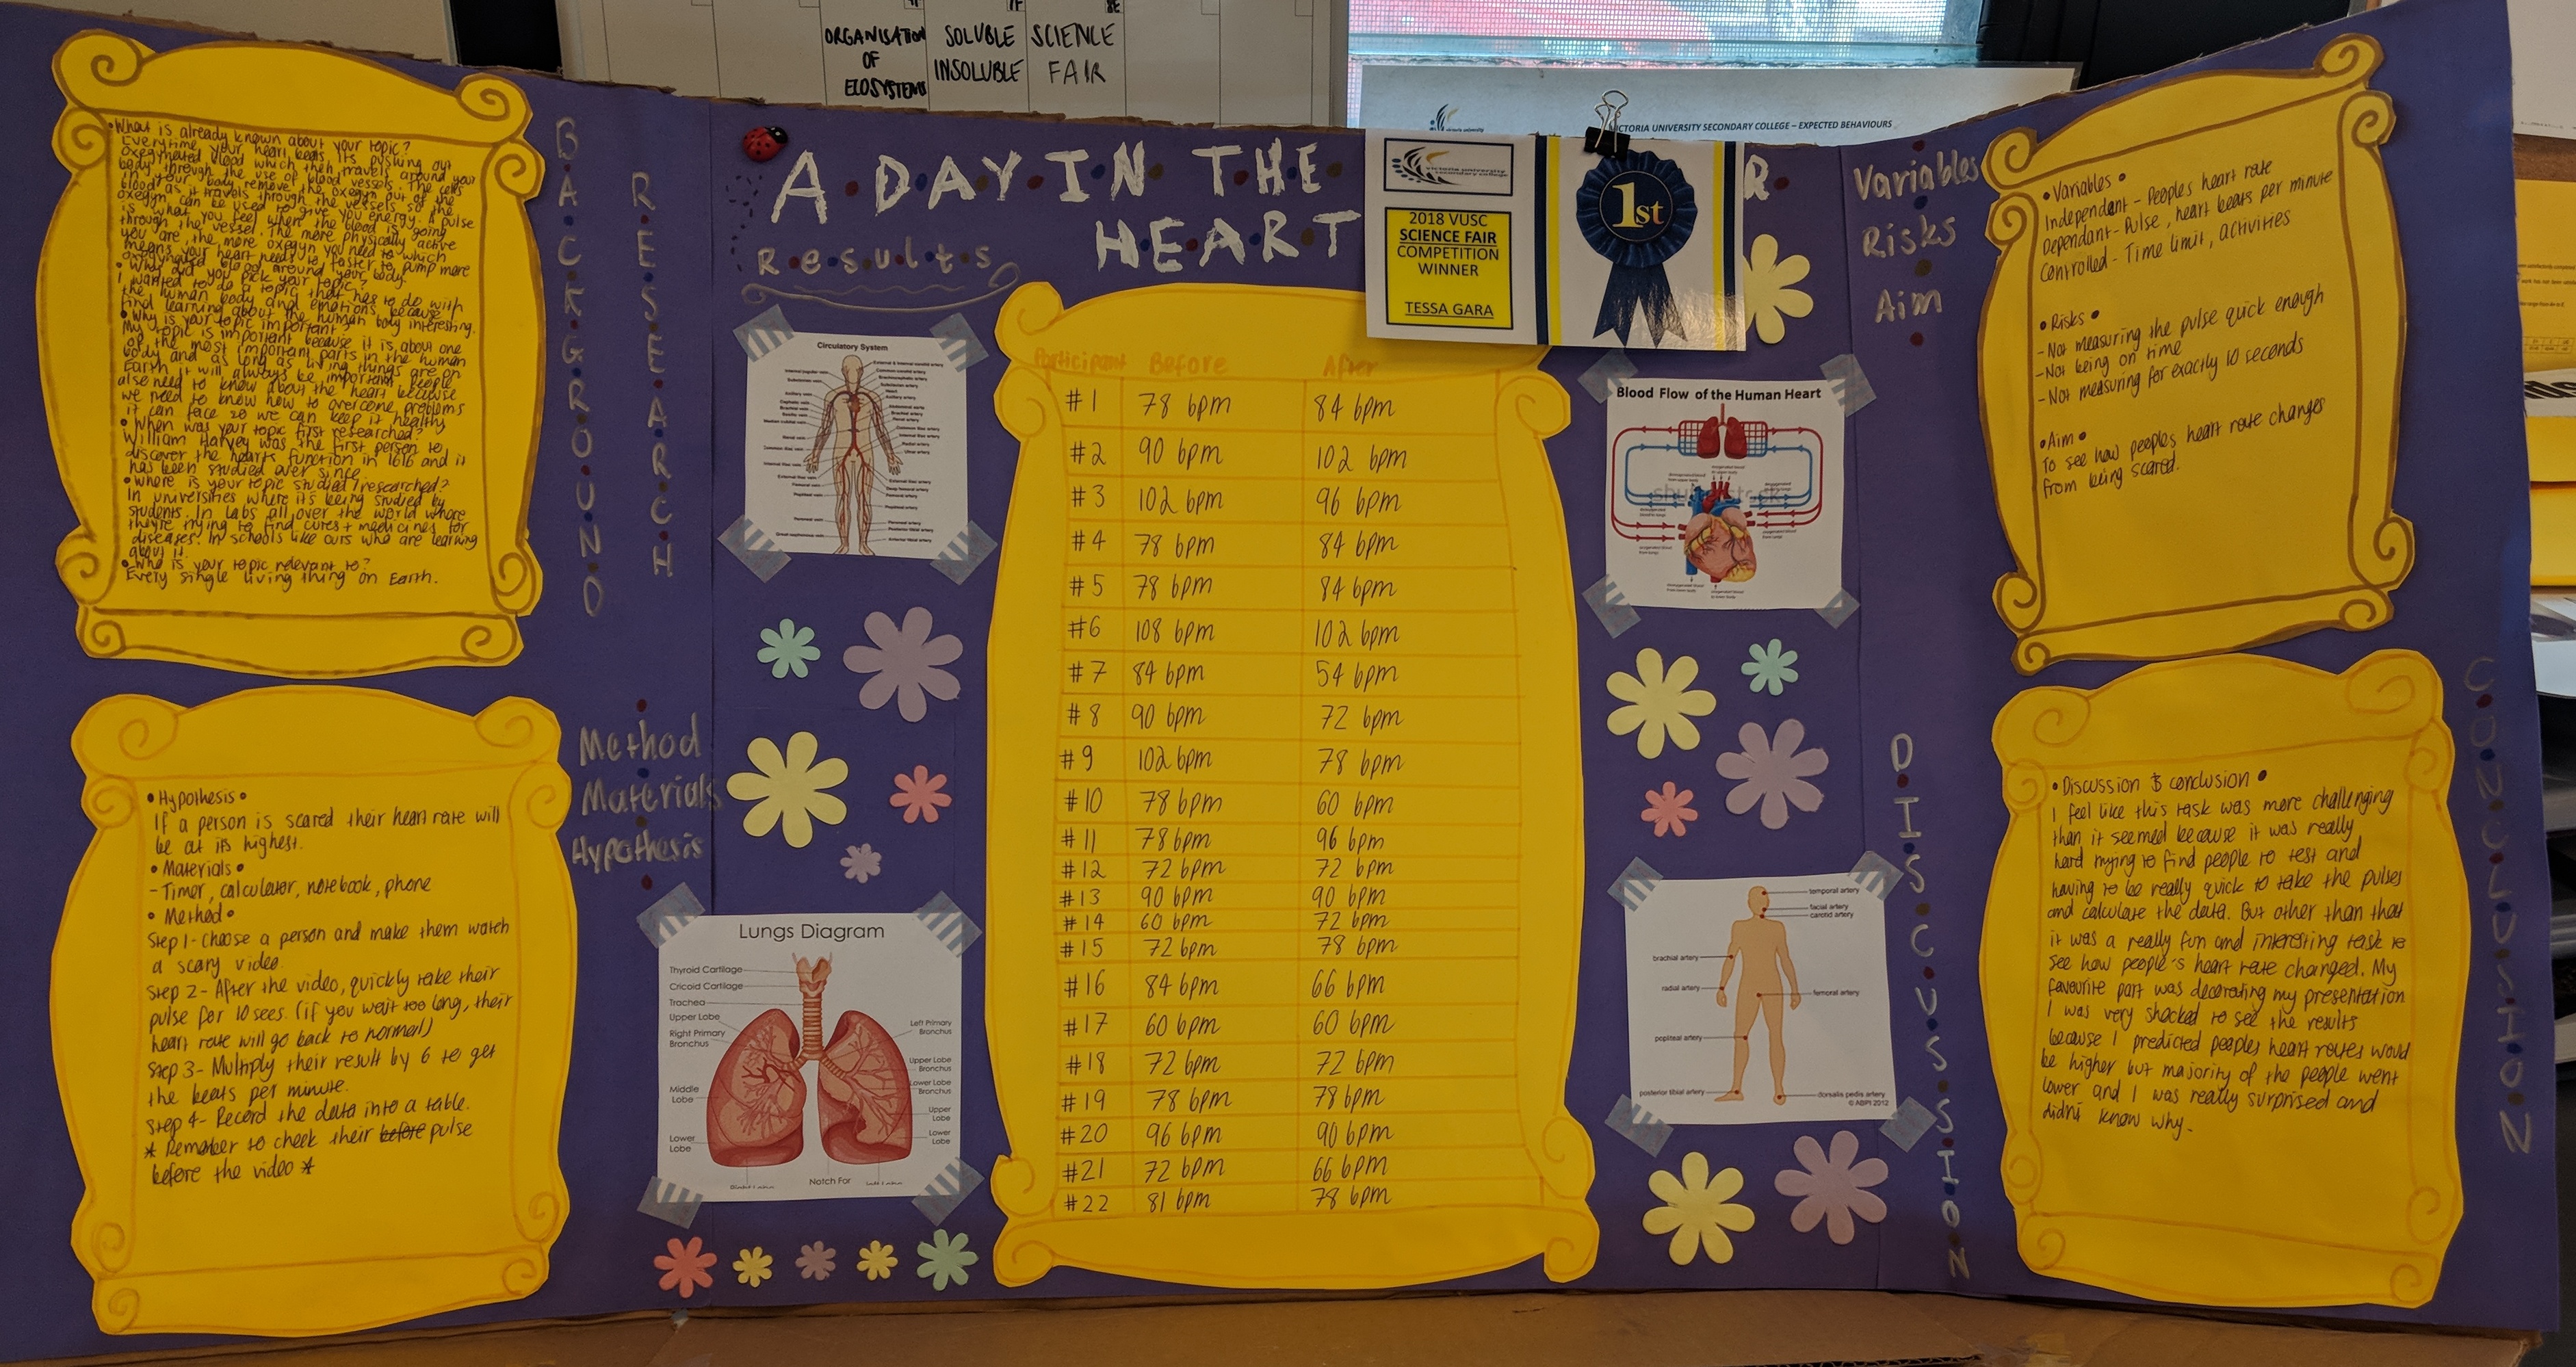 ORGANISATION
OF
ECOSYSTEMS
SOLUBLE
INSOLUBLE
SCIENCE
FAIR
VICTORIA UNIVERSITY SECONDARY COLLEGE – EXPECTED BEHAVIOURS
A DAY IN THE
HEART
R
2018 VUSC
SCIENCE FAIR
COMPETITION
WINNER
TESSA GARA
1st
BACKGROUND
RESEARCH
• What is already known about your topic?
Everytime your heart beats, its pushing out
oxegynated blood which then travels around your
body through the use of blood vessels. The cells
in your body remove the oxegyn out of the
blood as it travels through the vessels so the
oxegyn can be used to give you energy. A pulse
is what you feel when the blood is going
through the vessel. The more physically active
you are, the more oxegyn you need to which
means your heart needs to faster to pump more
oxegynated blood around your body.
• Why did you pick your topic?
I wanted to do a topic that has to do with
the human body and emotions because I
find learning about the human body interesting.
• Why is your topic important?
My topic is important because it is about one
of the most important parts in the human
body and as long as living things are on
Earth it will always be important. People
also need to know about the heart because
we need to know how to overcome problems
it can face so we can keep it healthy
• When was your topic first researched?
William Harvey was the first person to
discover the hearts function in 1616 and it
has been studied over since.
• Where is your topic studied/researched?
In universities where it's being studied by
students. In Labs all over the world where
they're trying to find cures + medicines for
diseases. In schools like ours who are learning
about it.
• Who is your topic relevant to?
Every single living thing on Earth.
Method
Materials
Hypothesis
• Hypothesis •
If a person is scared their heart rate will
be at its highest.
• Materials •
- Timer, calculator, notebook, phone
• Method •
Step 1 - Choose a person and make them watch
a scary video.
Step 2 - After the video, quickly take their
pulse for 10 secs. (if you wait too long, their
heart rate will go back to normal)
Step 3 - Multiply their result by 6 to get
the beats per minute.
Step 4 - Record the data into a table.
* Remember to check their before pulse
before the video *
Results
Circulatory System
Lungs Diagram
Thyroid Cartilage
Cricoid Cartilage
Trachea
Upper Lobe
Right Primary
Bronchus
Middle
Lobe
Lower
Lobe
Left Primary
Bronchus
Upper Lobe
Bronchus
Lower Lobe
Bronchus
Upper
Lobe
Lower
Lobe
Notch For
Participant Before After
#1 78 bpm 84 bpm
#2 90 bpm 102 bpm
#3 102 bpm 96 bpm
#4 78 bpm 84 bpm
#5 78 bpm 84 bpm
#6 108 bpm 102 bpm
#7 84 bpm 54 bpm
#8 90 bpm 72 bpm
#9 102 bpm 78 bpm
#10 78 bpm 60 bpm
#11 78 bpm 96 bpm
#12 72 bpm 72 bpm
#13 90 bpm 90 bpm
#14 60 bpm 72 bpm
#15 72 bpm 78 bpm
#16 84 bpm 66 bpm
#17 60 bpm 60 bpm
#18 72 bpm 72 bpm
#19 78 bpm 78 bpm
#20 96 bpm 90 bpm
#21 72 bpm 66 bpm
#22 81 bpm 78 bpm
Blood Flow of the Human Heart
temporal artery
facial artery
carotid artery
brachial artery
radial artery
femoral artery
popliteal artery
posterior tibial artery
dorsalis pedis artery
© ABPI 2012
Variables
Risks
Aim
• Variables •
Independent - Peoples heart rate
Dependant - Pulse, heart beats per minute
Controlled - Time limit, activities
• Risks •
- Not measuring the pulse quick enough
- Not being on time
- Not measuring for exactly 10 seconds
• Aim •
To see how peoples heart rate changes
from being scared.
DISCUSSION
CONCLUSION
• Discussion & conclusion •
I feel like this task was more challenging
than it seemed because it was really
hard trying to find people to test and
having to be really quick to take the pulses
and calculate the data. But other than that
it was a really fun and interesting task to
see how people's heart rate changed. My
favourite part was decorating my presentation
I was very shocked to see the results
because I predicted peoples heart rates would
be higher but majority of the people went
lower and I was really surprised and
didn't know why.